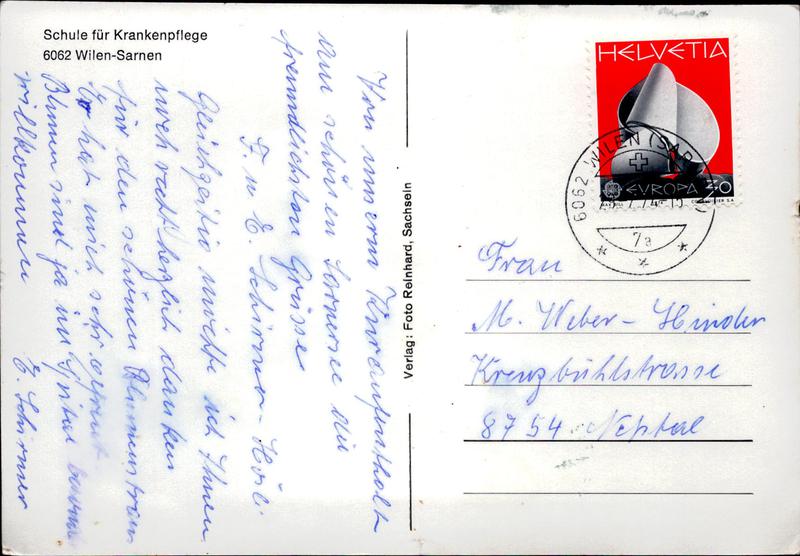 Schule für Krankenpflege
6062 Wilen-Sarnen
Von unserm Kuraufenthalt
am schönen Sarnersee die
freundlichsten Grüsse
F. u E. Schirmer-
Gleichzeitig möchte ich Ihnen
noch recht herzlich danken
für den schönen Blumenstrauss
Er hat mich sehr gefreut
Blumen sind ja im Spital
willkommen
E. Schirmer
Verlag: Foto Reinhard, Sachseln
HELVETIA
EUROPA 30
6062 WILEN (SARNEN)
7a
Frau
M. Weber-Hinder
Kreuzbühlstrasse
8754 Netstal